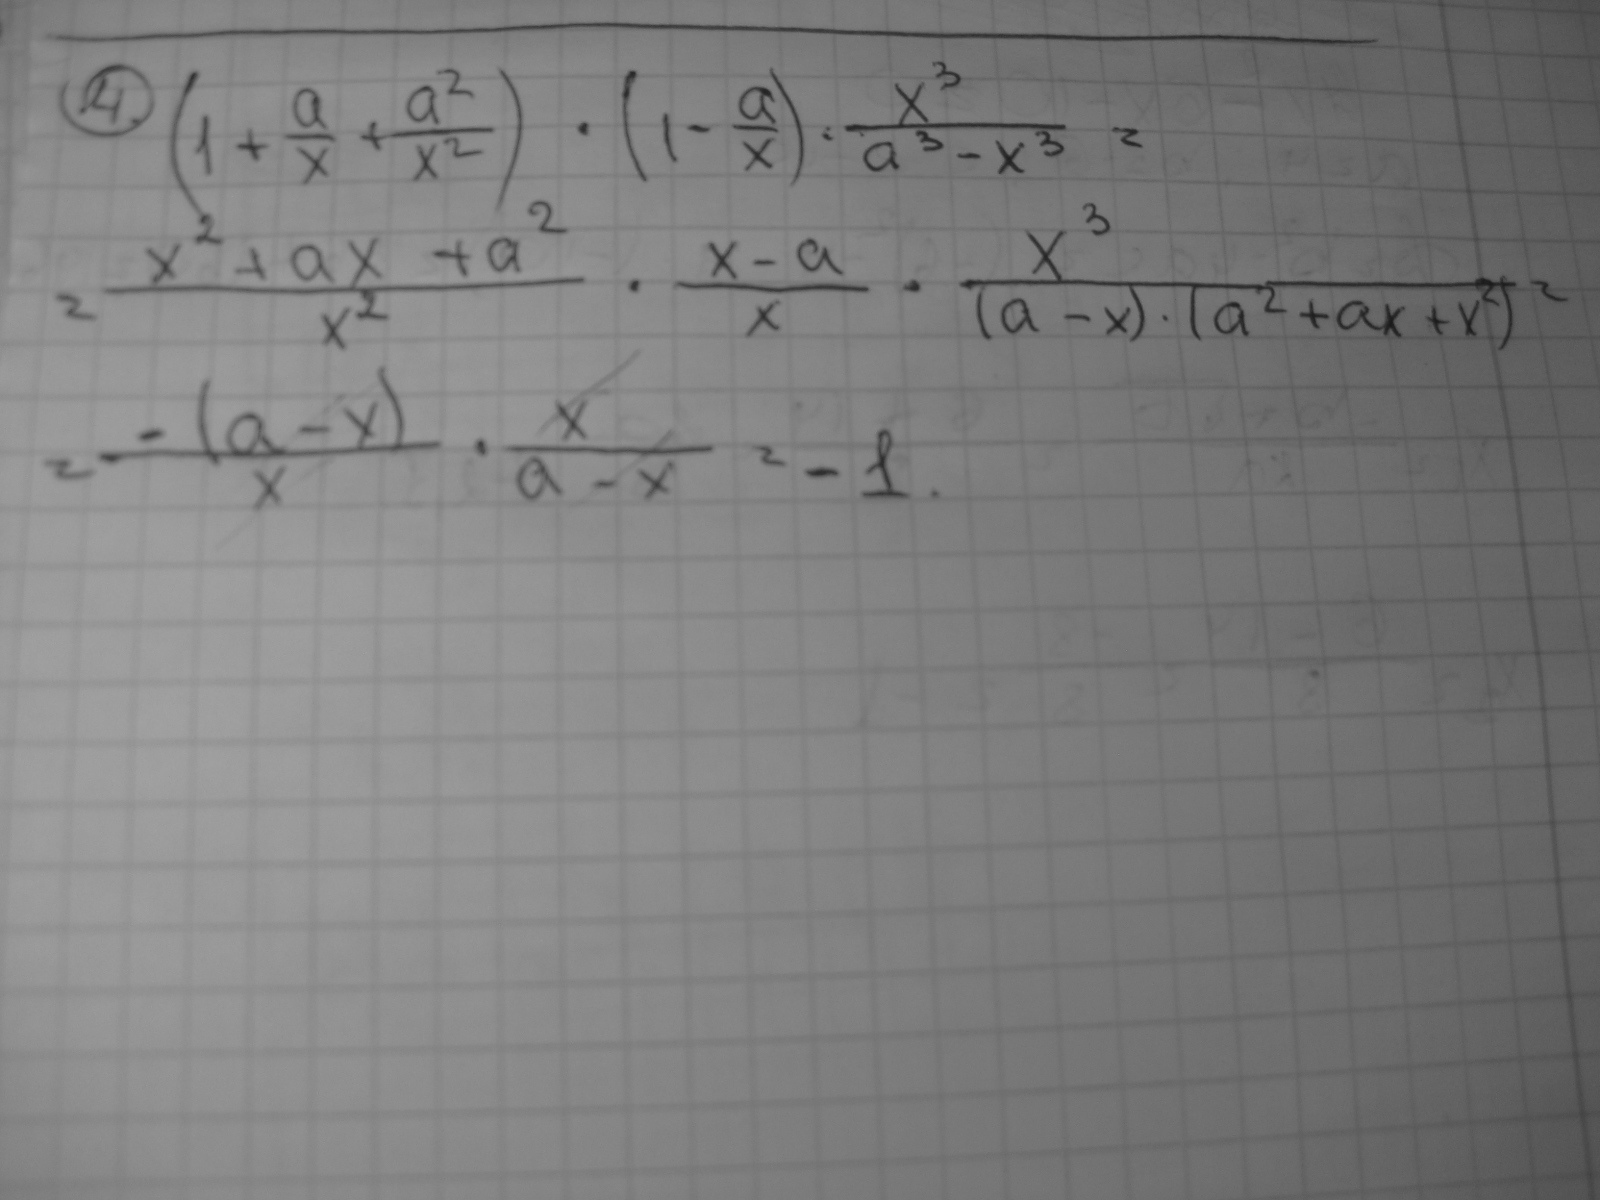 ④ (1 + a/x + a²/x²) · (1 - a/x) · x³/(a³ - x³) =
= (x² + ax + a²)/x² · (x - a)/x · x³/((a - x) · (a² + ax + x²)) =
= -(a - x)/x · x/(a - x) = -1.